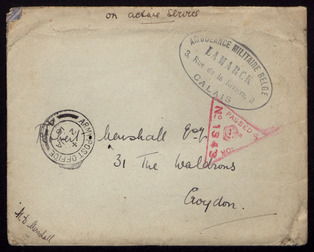 on active service
AMBULANCE MILITAIRE BELGE
LAMARCK
3, Rue de la Rivière, 3
CALAIS
ARMY POST OFFICE
PASSED
No 1343
Marshall Esqr
31 The Waldrons
Croydon.